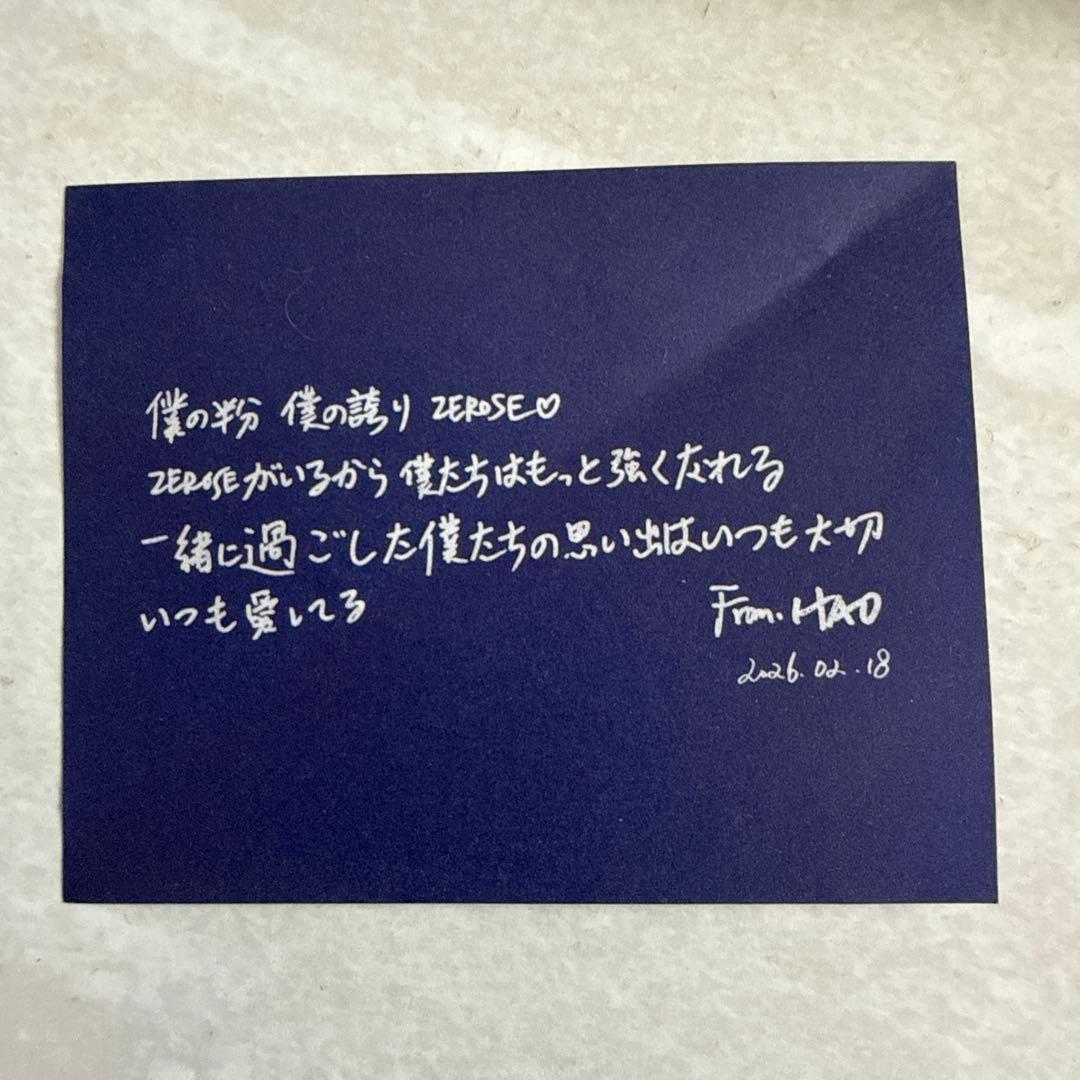 僕の半分 僕の誇り ZEROSE♡
ZEROSEがいるから 僕たちはもっと強くなれる
一緒に過ごした僕たちの思い出はいつも大切
いつも愛してる
From. HAO
2026.02.18